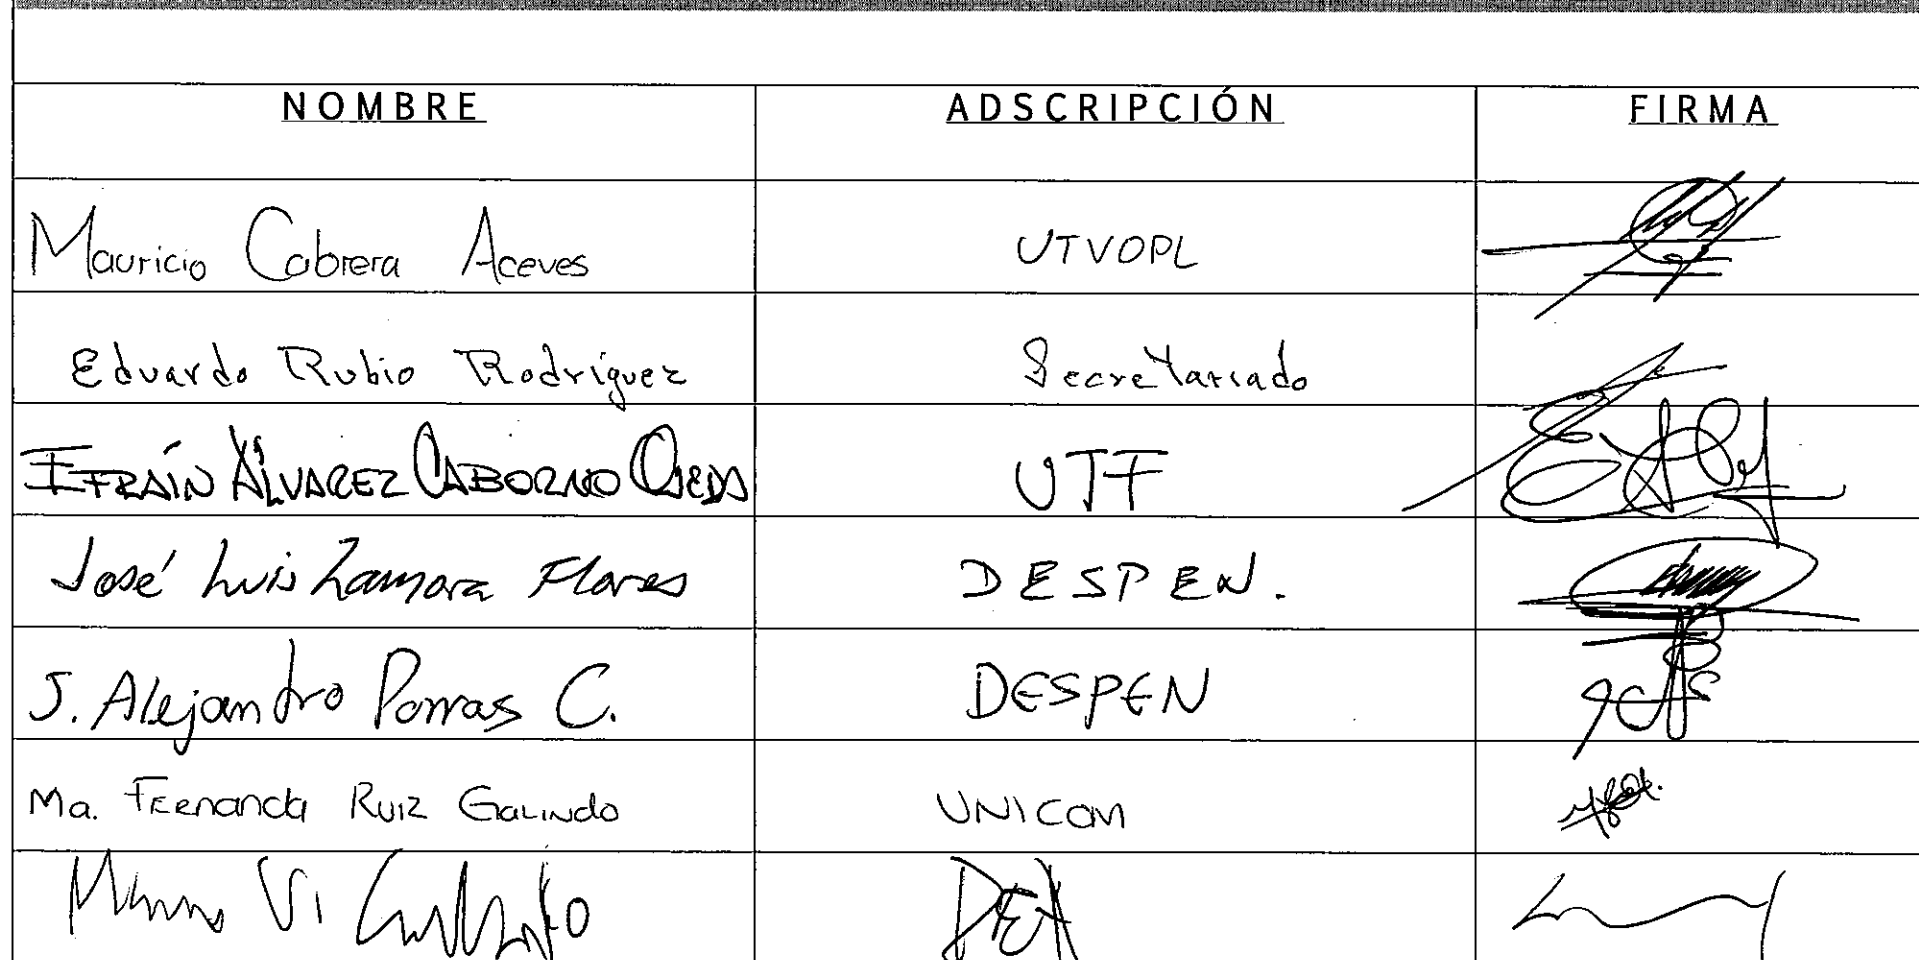 NOMBRE ADSCRIPCIÓN FIRMA
Mauricio Cabrera Aceves UTVOPL
Eduardo Rubio Rodríguez Secretariado
EFRAÍN ÁLVAREZ CABORNO OJEDA UTF
José Luis Zamora Flores DESPEN.
J. Alejandro Porras C. DESPEN
Ma. Fernanda Ruiz Galindo UNICOM
DEA